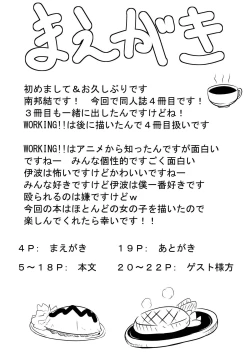 まえがき
初めまして＆お久しぶりです
南邦結です！　今回で同人誌４冊目です！
３冊目も一緒に出したんですけどね！
WORKING!!は後に描いたんで４冊目扱いです
WORKING!!はアニメから知ったんですが面白い
ですねー　みんな個性的ですごく面白い
伊波は怖いですけどかわいいですねー
みんな好きですけど伊波は僕一番好きです
殴られるのは嫌ですけどｗ
今回の本はほとんどの女の子を描いたので
楽しんでくれたら幸いです！！
４Ｐ：　まえがき　　　１９Ｐ：　あとがき
５～１８Ｐ：　本文　　２０～２２Ｐ：　ゲスト様方